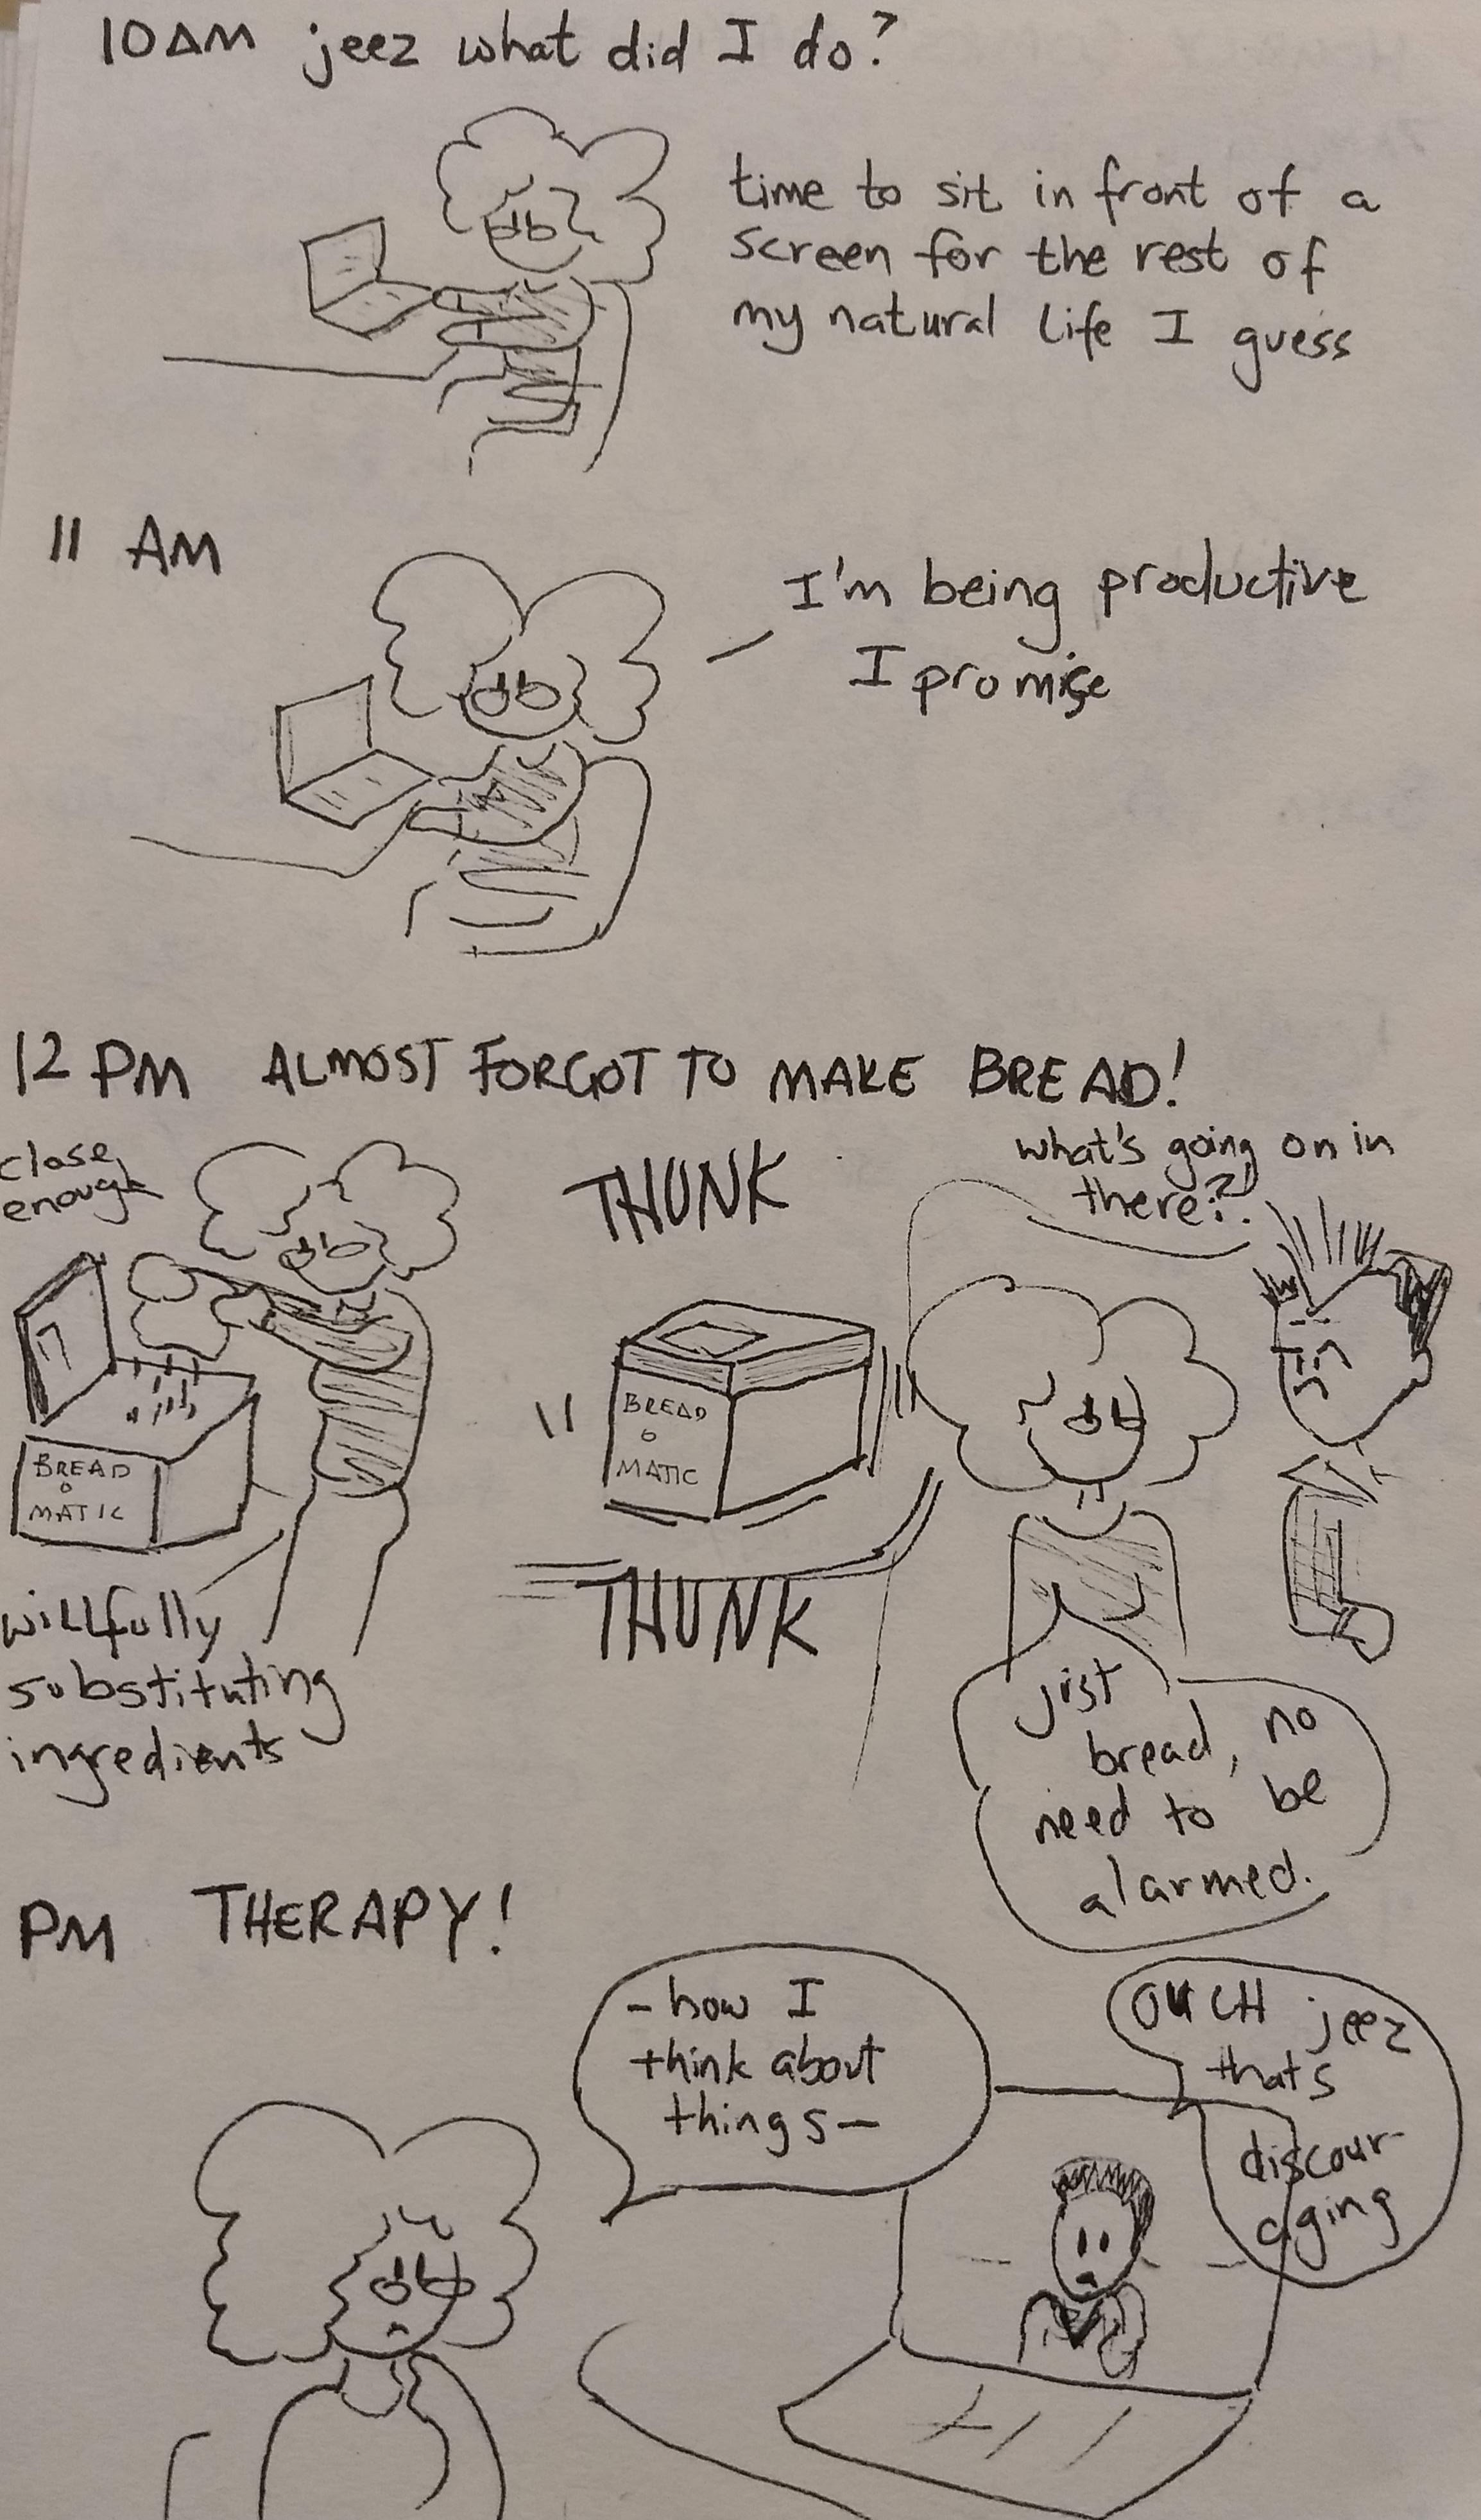 10AM jeez what did I do?
time to sit in front of a
screen for the rest of
my natural life I guess
11 AM
I'm being productive
I promise
12 PM ALMOST FORGOT TO MAKE BREAD!
close
enough
BREAD
O
MATIC
willfully
substituting
ingredients
THUNK
BREAD
O
MATIC
THUNK
what's going on in
there?!
just
bread, no
need to be
alarmed.
PM THERAPY!
- how I
think about
things -
OUCH jeez
thats
discour-
aging